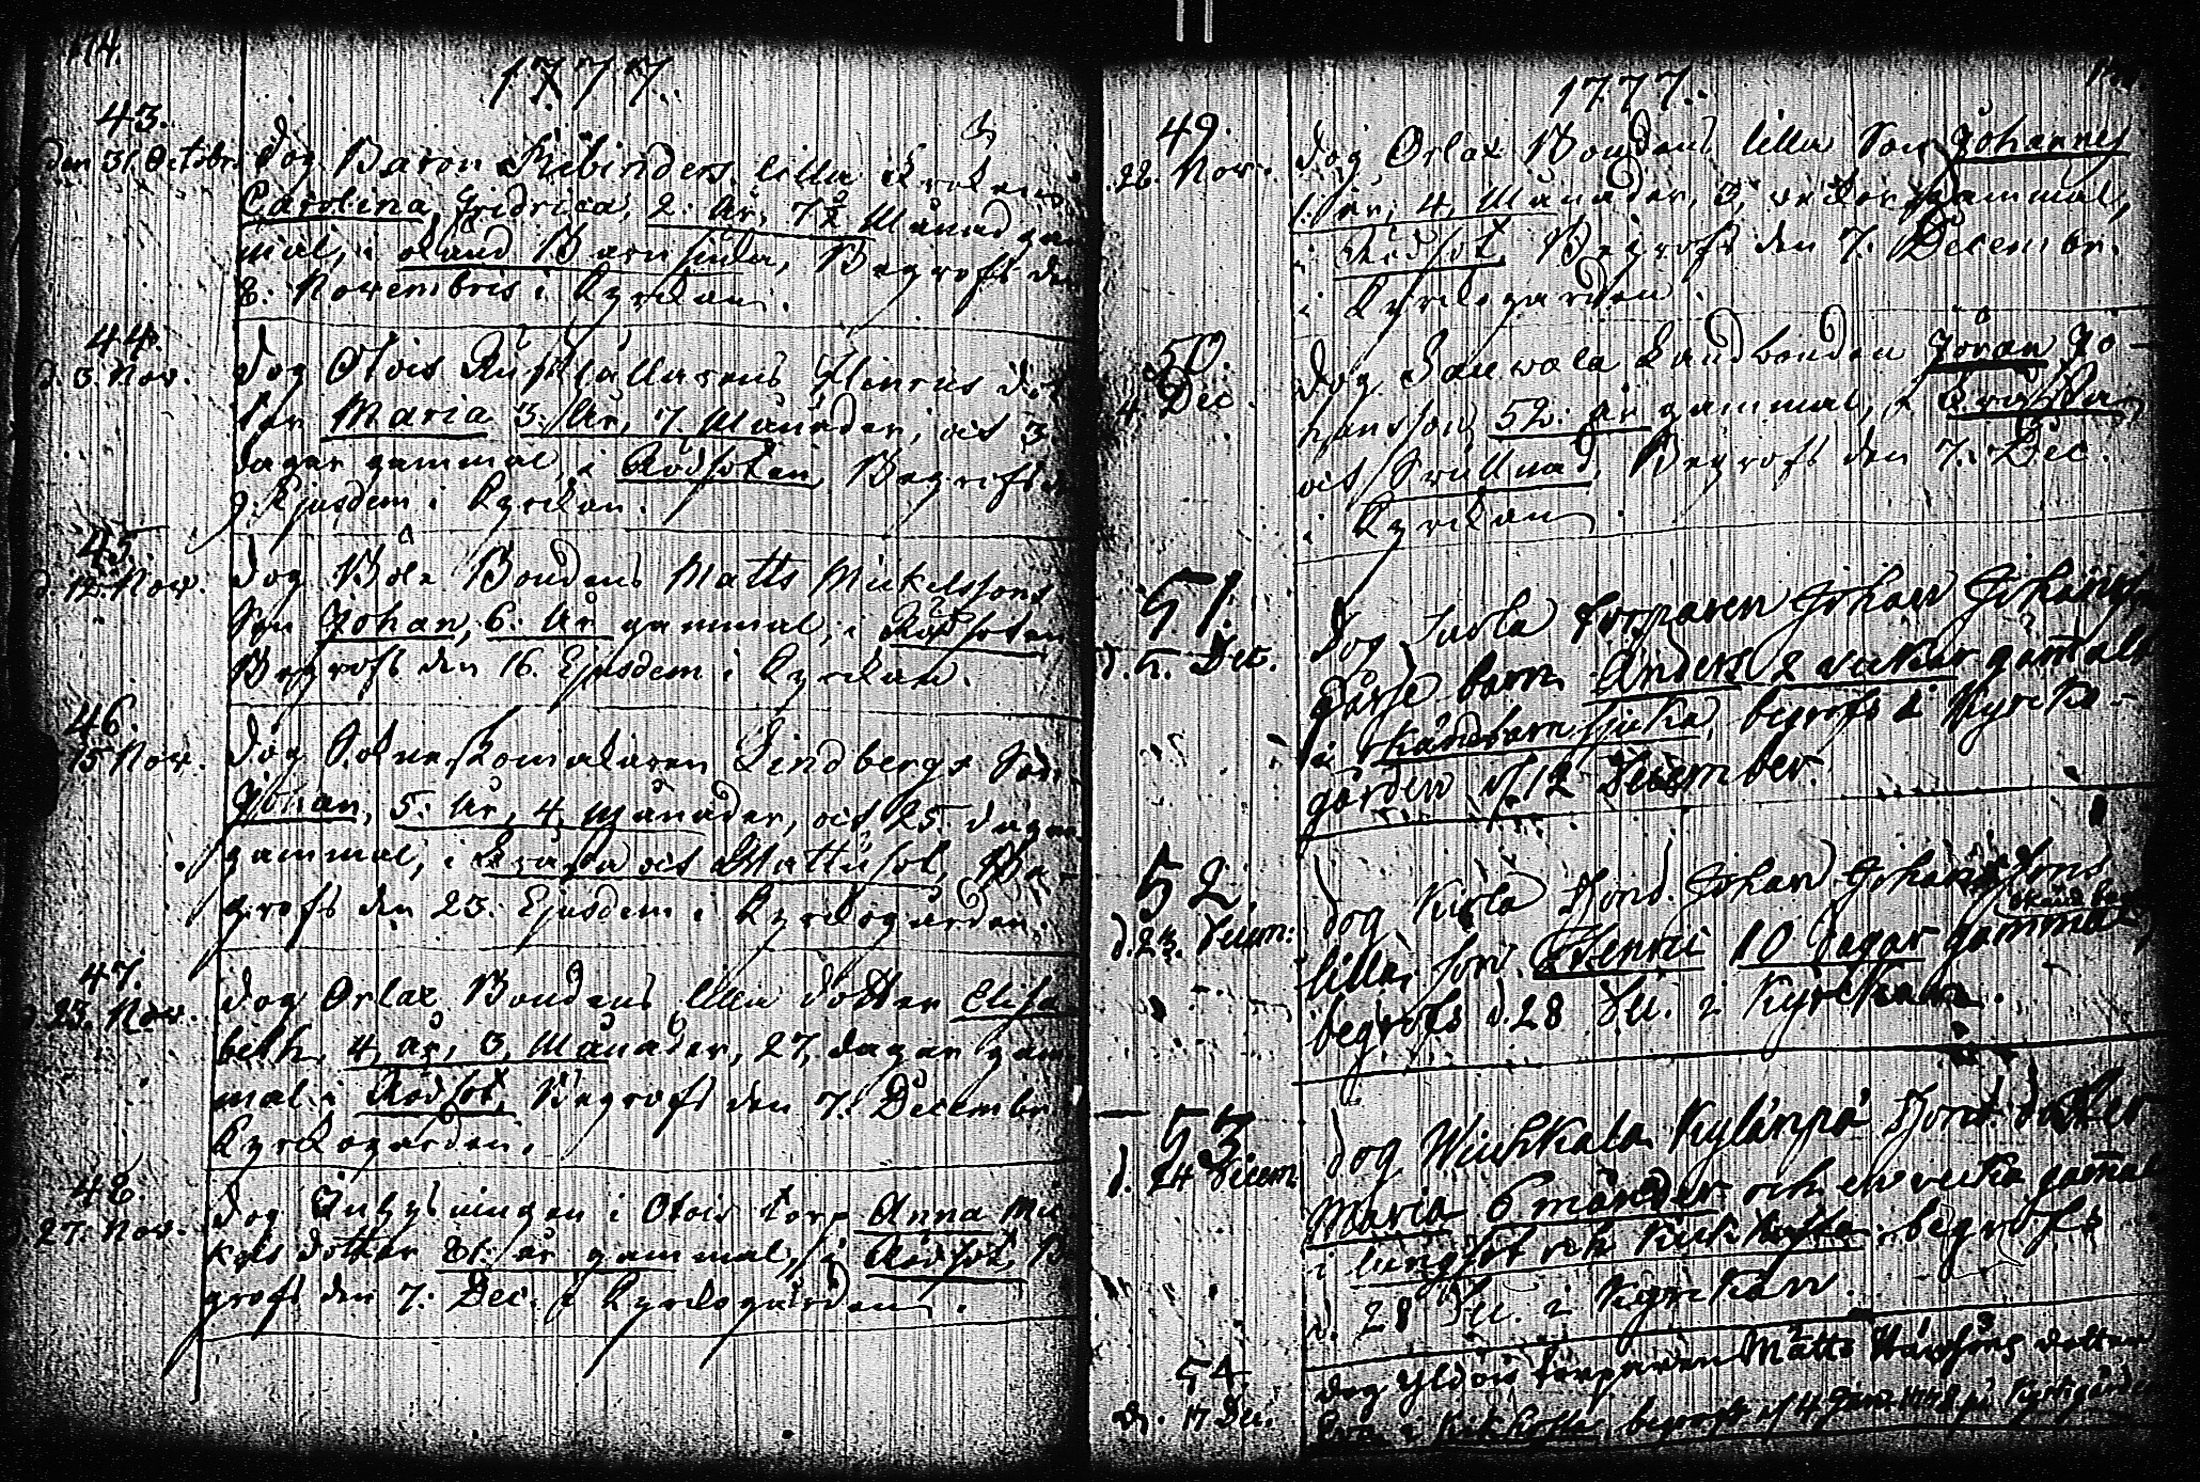 174.
1777.
43.
den 31 Octobr. Dog Baron Rebinders lilla Fröken
Carolina Fridrica, 2: år, 7½ Månad gam
mal, i okänd Barnsiuka, Begrofs den
8. Novembris i Kyrckan.
44.
d. 3. Nov. Dog Otois Rusthållarens Hinrics dot
ter Maria 3: år, 7. Månader, och 3
dagar gammal, i Rödsoten, Begrofs d.
9. Ejusdem i Kyrckan.
45.
d. 12. Nov. Dog Böle Bondens Matts Mickelssons
Son Johan, 6: år gammal, i Rödsoten
Begrofs den 16. Ejusdem i Kyrckan.
46.
15 Nov. Dog Sokneskomakaren Lindbergs Son
Johan, 5: år, 4 månader, och 25. dagar
gammal, i och Be-
grofs den 23. Ejusdem i Kyrckogården.
47.
23. Nov. Dog Orlax Bondens lilla dotter Elisa
beth, 4, år, 3, Månader, 27, dagar gam
mal i Rödsot, Begrofs den 7. Decembr. i
Kyrckogården.
48.
27. Nov. Dog Inhysningen i Otois torp Anna Mic
kels dotter 81: år gammal, i Rödsot, Be
grofs den 7: Dec. i Kyrckogården.
1777.
49.
28. Nov. Dog Orlax Bondens lilla Son Johannes
1: år, 4, Månader, 3, veckor gammal,
i Rödsot, Begrofs den 7. Decembr.
i Kyrckogården.
50.
4. Dec Dog Landbonden Jöran Jo-
hansson 52: år gammal, i
och Begrofs den 7. Dec.
i Kyrckan.
51.
d. 5. Dec. Dog torparen Johan Johans
barn Anders 2 veckor gammal
i okänd barnsjuka, begrofs i Kyrcko-
gården d. 12 December.
52.
d. 23. Decem: Dog Bond. Johan Johanssons
okänd bar
lilla son Henric 10 dagar gammal,
begrofs d. 28 Dec. i Kyrckan.
53
d. 24 Decem Dog Kylänpä Bond. dotter
Maria 6 månader och en vecka gammal
i lungsot och Kickhosta begrofs
d. 28 Dec. i Kyrckan.
54
d. 17 Dec. Dog torparen Matts dotter
i Kikhosta, begrofs d. 4 Janu. 1778 på Kyrkogården